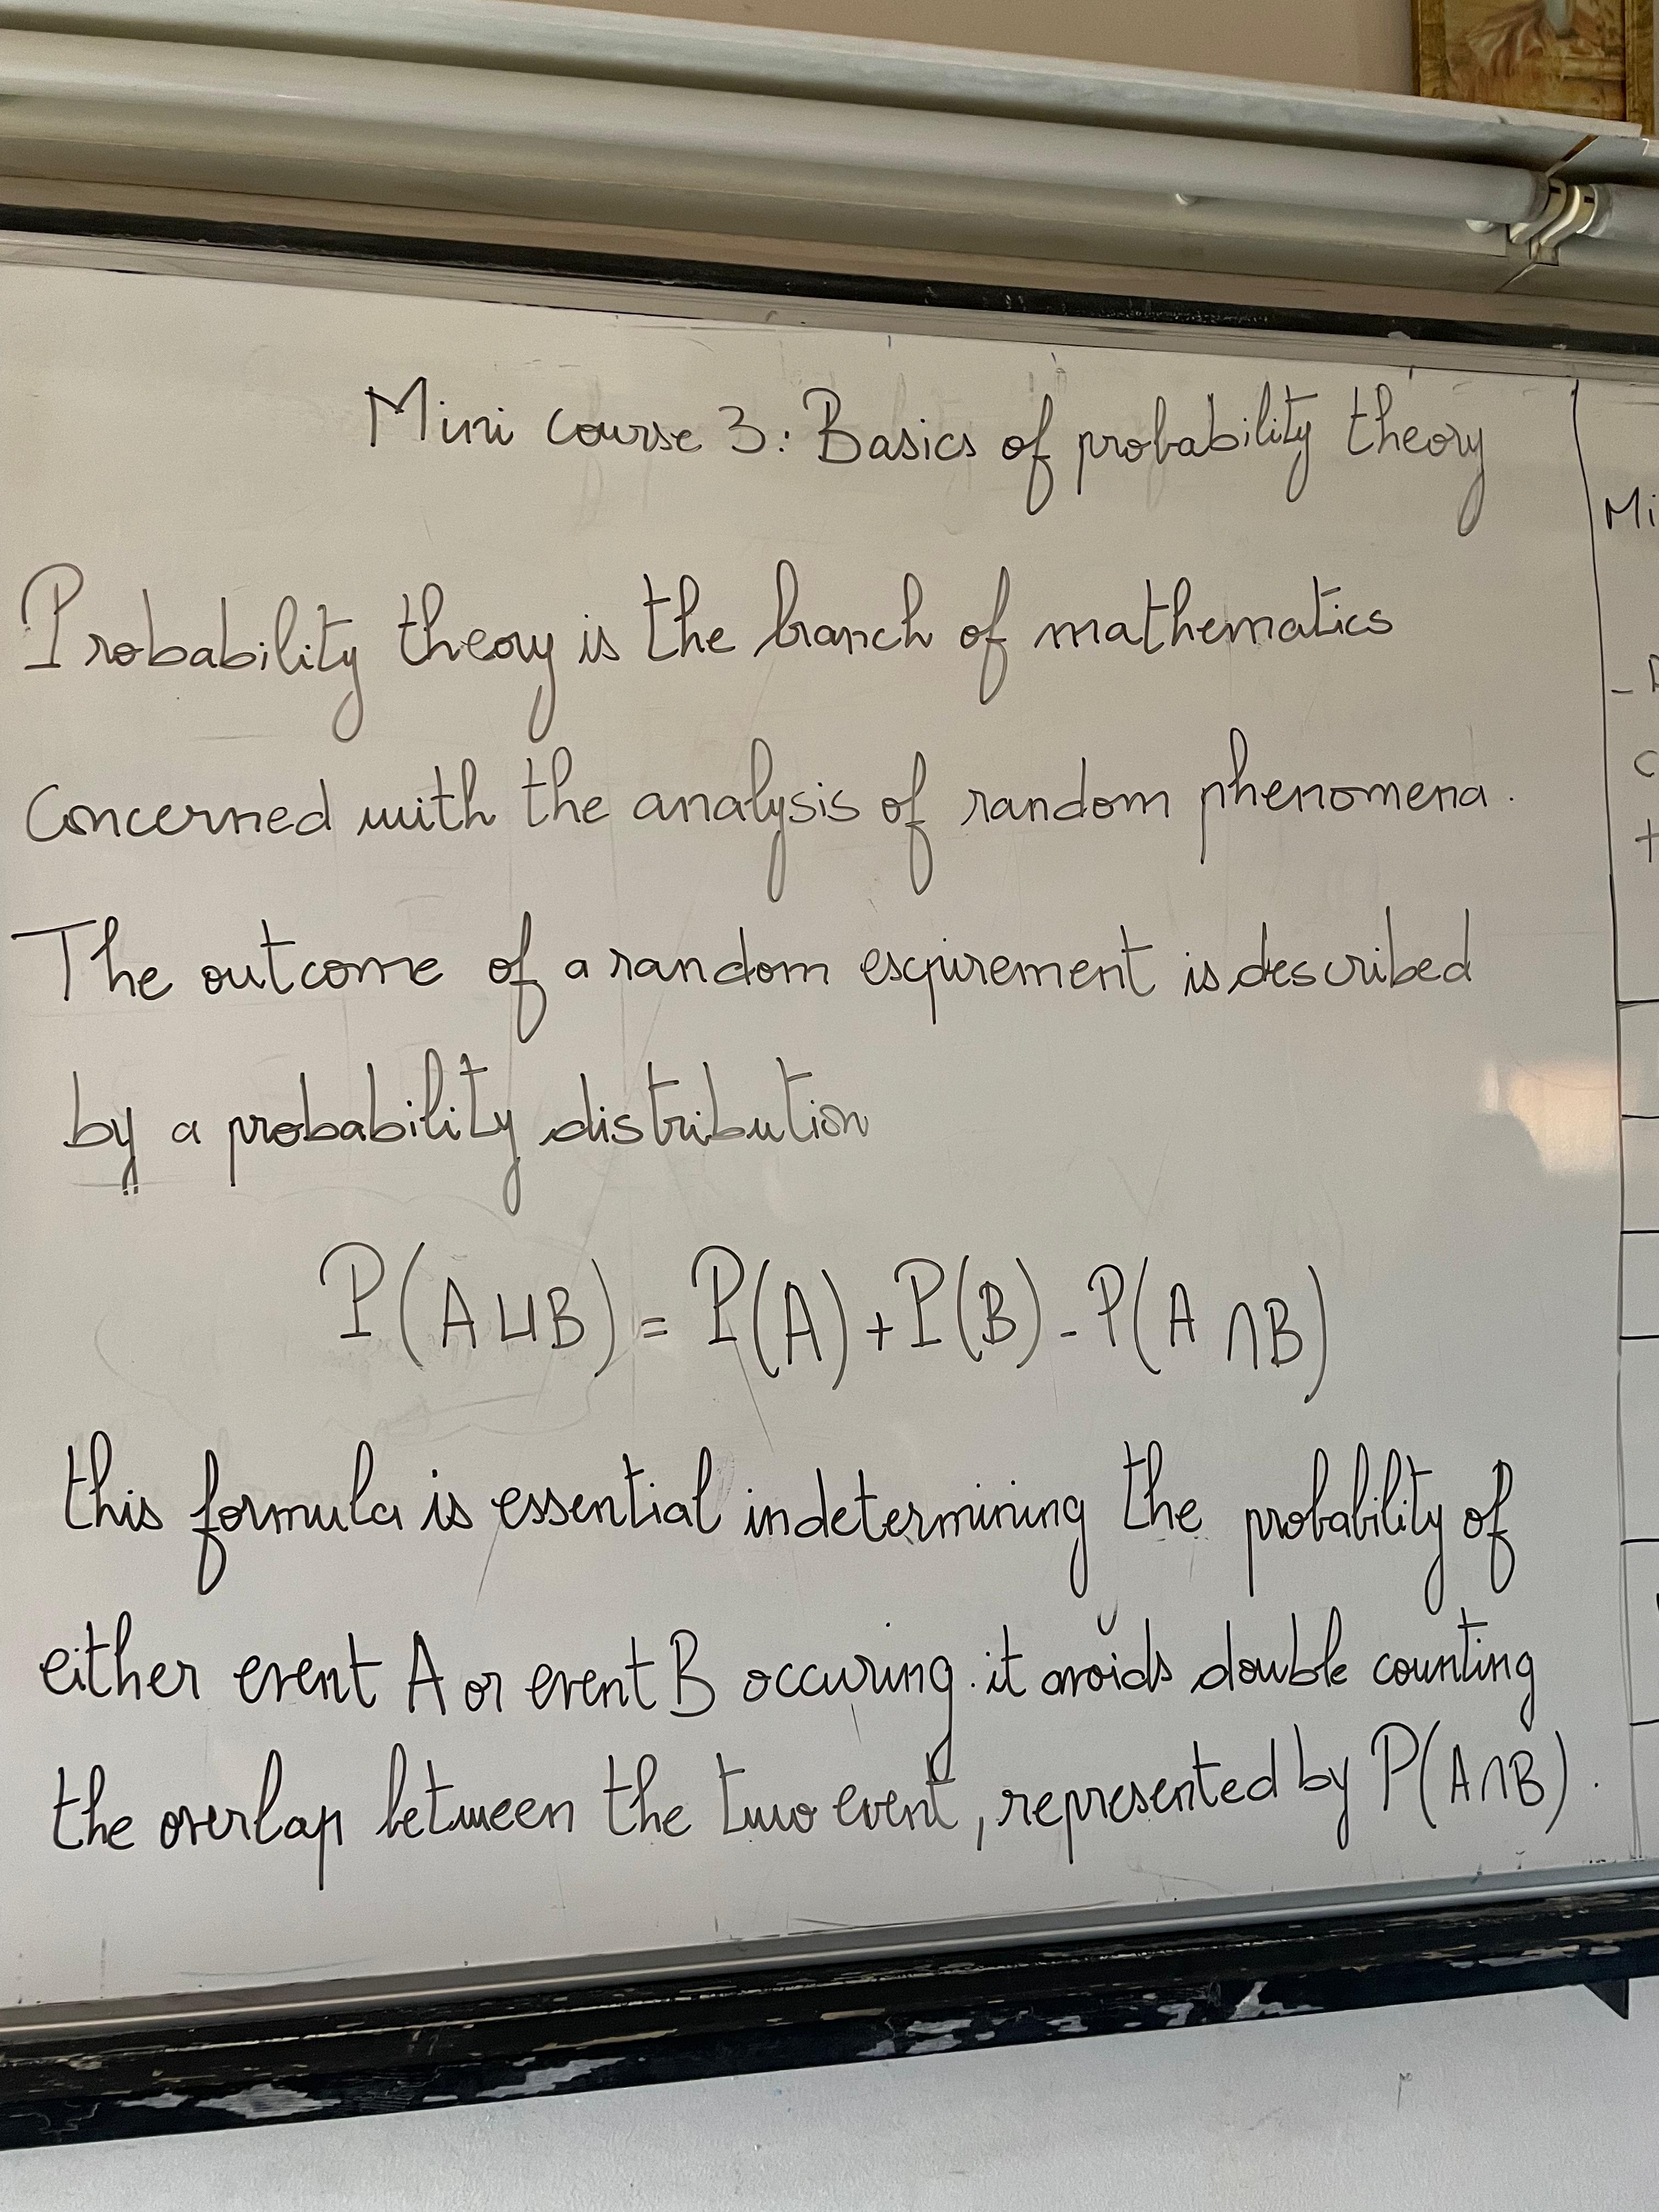 Mini course 3: Basics of probability theory
Probability theory is the branch of mathematics
concerned with the analysis of random phenomena.
The outcome of a random expirement is described
by a probability distribution
P(A ∪ B) = P(A) + P(B) - P(A ∩ B)
this formula is essential in determining the probability of
either event A or event B occuring. it avoids double counting
the overlap between the two event, represented by P(A∩B).
Mi